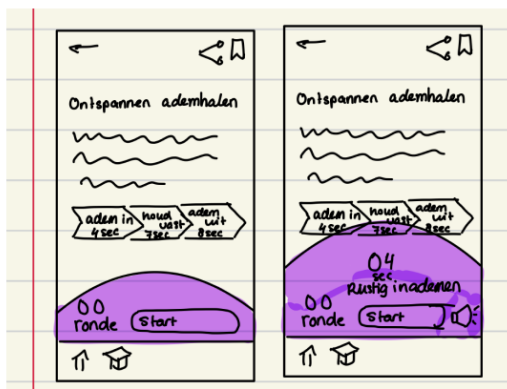 Ontspannen ademhalen
adem in
4 sec
houd
vast
7sec
adem
uit
8sec
00
ronde
Start
Ontspannen ademhalen
adem in
4 sec
houd
vast
7sec
adem
uit
8sec
04
sec
Rustig inademen
00
ronde
Start